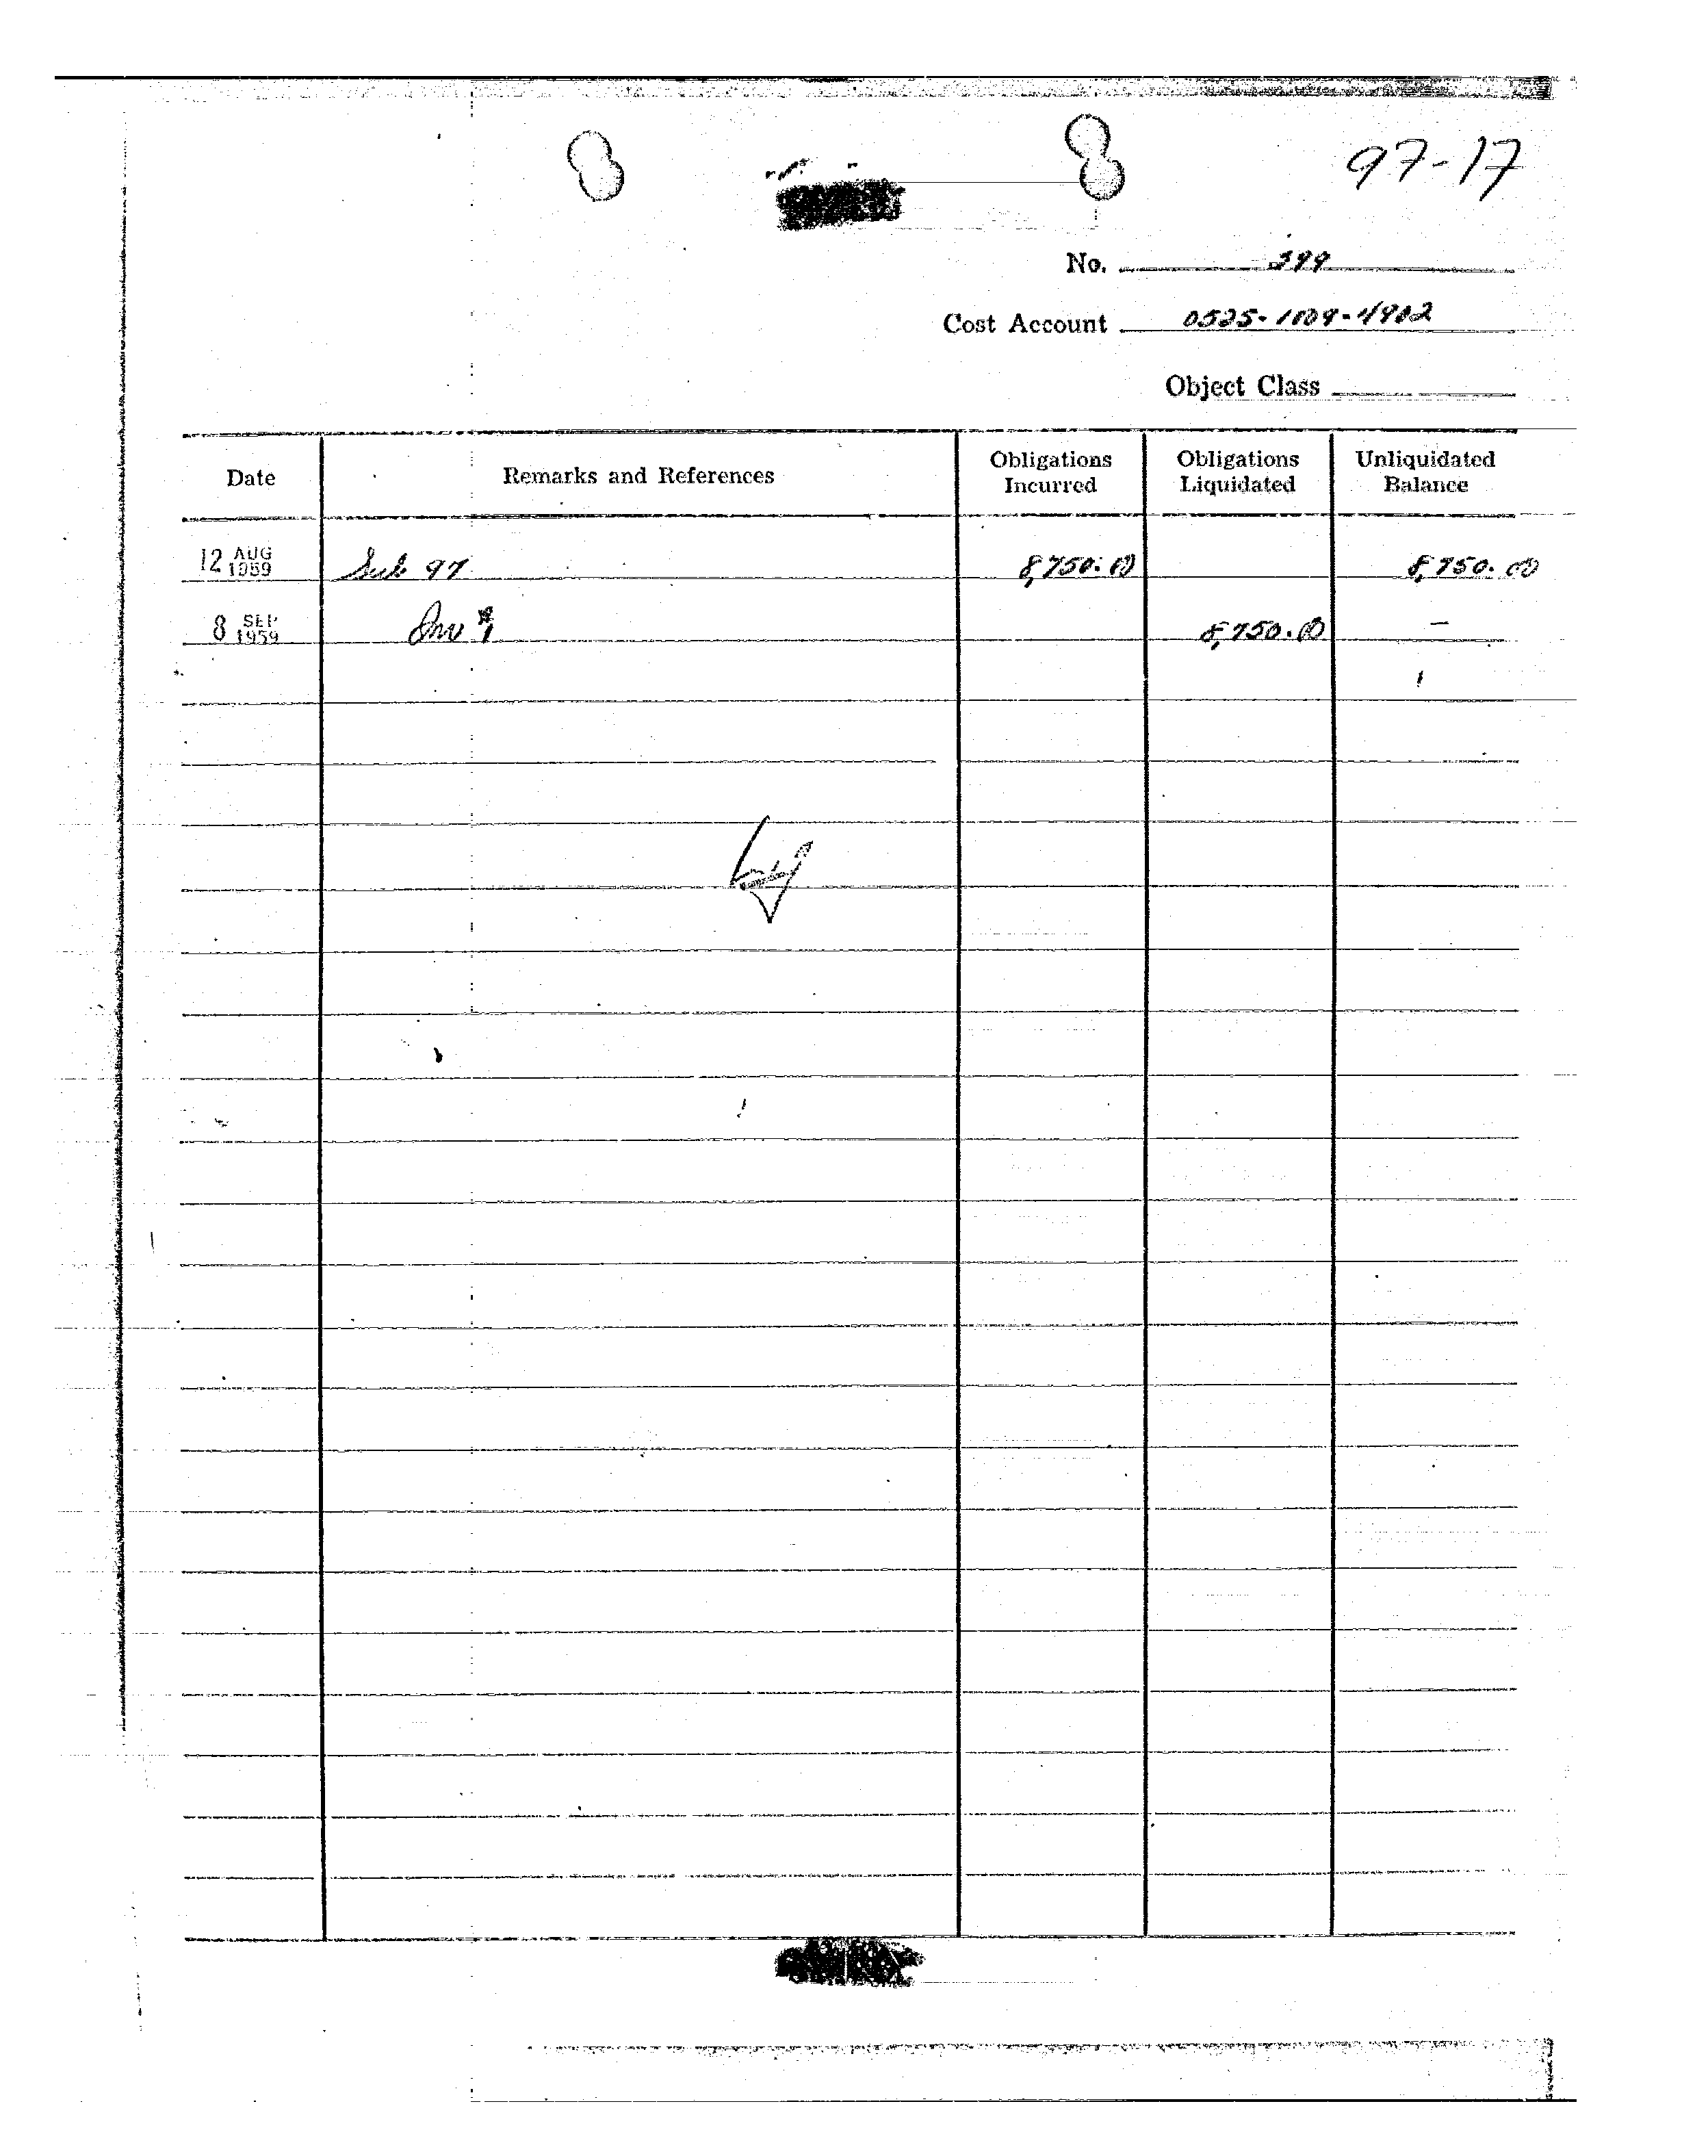 97-17
No. 399
Cost Account 0525-1109-4902
Object Class
Date Remarks and References Obligations Incurred Obligations Liquidated Unliquidated Balance
12 AUG 1959 Sub 97 8,750.00 8,750.00
8 SEP 1959 Inv #1 8,750.00 —